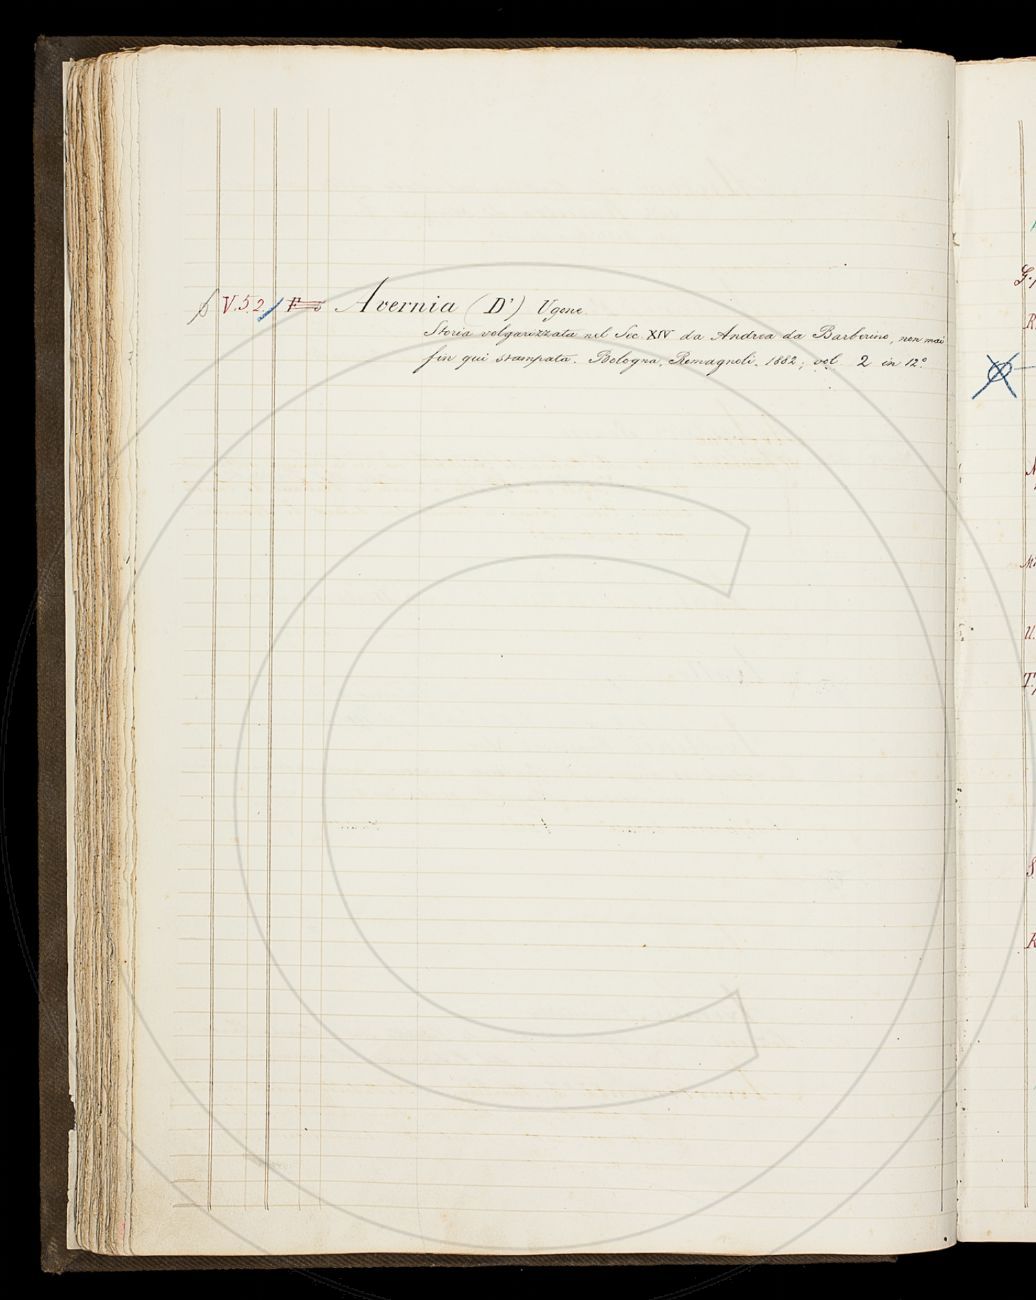 V.5.2 F Avernia (D') Ugone.
Storia volgarizzata nel Sec. XIV da Andrea da Barberino, non mai
fin qui stampata. Bologna, Romagnoli. 1882; vol 2 in 12°.
G.
R
M
U.
T.
S
R